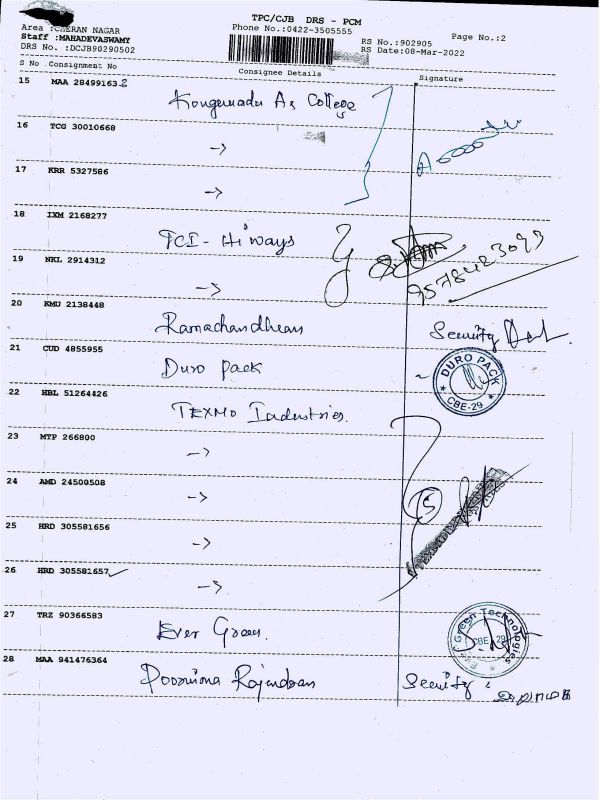 TPC/CJB DRS - PCM
Area :CHERAN NAGAR Phone No.:0422-3505555 Page No.:2
Staff :MAHADEVASWAMY RS No.:902905
DRS No. :DCJB90290502 RS Date:08-Mar-2022
S No Consignment No Consignee Details Signature
15 MAA 284991632
Kongunadu As College
16 TCG 30010668
->
17 KRR 5327586
->
18 IXM 2168277
TCI - Hiways
19 NKL 2914312
->
9578423099
20 KMU 2138448
Ramachandhran Security
21 CUD 4855955
Duro pack
DURO PACK
CBE-29
22 HBL 51264426
TEXMO Industries.
23 MTP 266800
->
24 AMD 24500508
->
25 HRD 305581656
->
26 HRD 305581657
->
27 TRZ 90366583
Ever Green
Ever Green Technologies
CBE 29
28 MAA 941476364
Poornima Rajendran Security